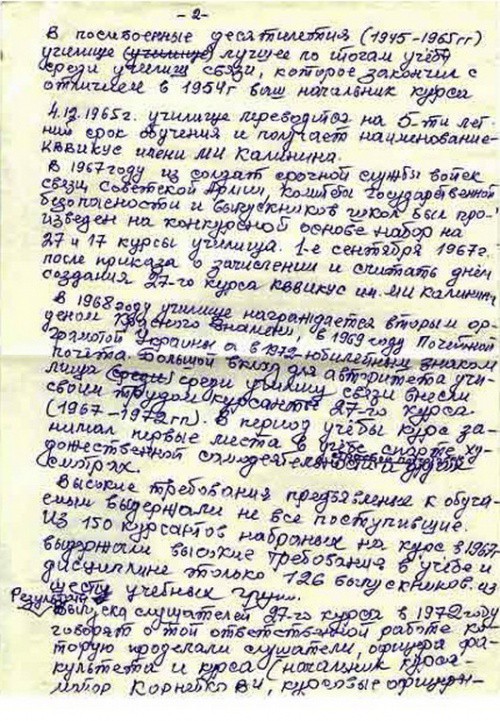 - 2 -
В послевоенные десятилетия (1945-1965гг)
училище (училище) лучшее по итогам учёбы
среди училищ связи, которое закончил с
отличием в 1954г ваш начальник курса
4.12.1965г. училище переводится на 5-ти лет-
ний срок обучения и получает наименование-
КВВИКУС имени МИ Калинина.
В 1967 году из солдат срочной службы войск
связи Советской Армии, Комитета Государственной
безопасности и выпускников школ был про-
изведен на конкурсной основе набор на
27 и 17 курсы училища. 1-е сентября 1967г.
после приказа о зачислении и считать днём
создания 27-го курса КВВИКУС им. МИ Калинина
В 1968 году училище награждается вторым ор-
деном Красного Знамени, в 1969 году Почётной
грамотой Украины а в 1972-юбилейным знаком
почёта. Большой вклад для авторитета учи-
лища (среди) среди училищ связи внесли
своим трудом курсанты 27-го курса
(1967-1972гг). В период учёбы курс за-
нимал первые места в учёбе спорте ху-
дожественной самодеятельности
смотрах.
Высокие требования предъявленные к обуча-
емым выдержали не все поступившие.
Из 150 курсантов набранных на курс в 1967
выдержали высокие требования в учёбе и
дисциплине только 126 выпускников. из
шести учебных групп.
Результаты
выпуска слушателей 27-го курса в 1972 году
говорят о той ответственной работе ко-
торую проделали слушатели, офицера фа-
культета и курса (начальник курса-
майор Корнейко ВИ, курсовые офицеры-